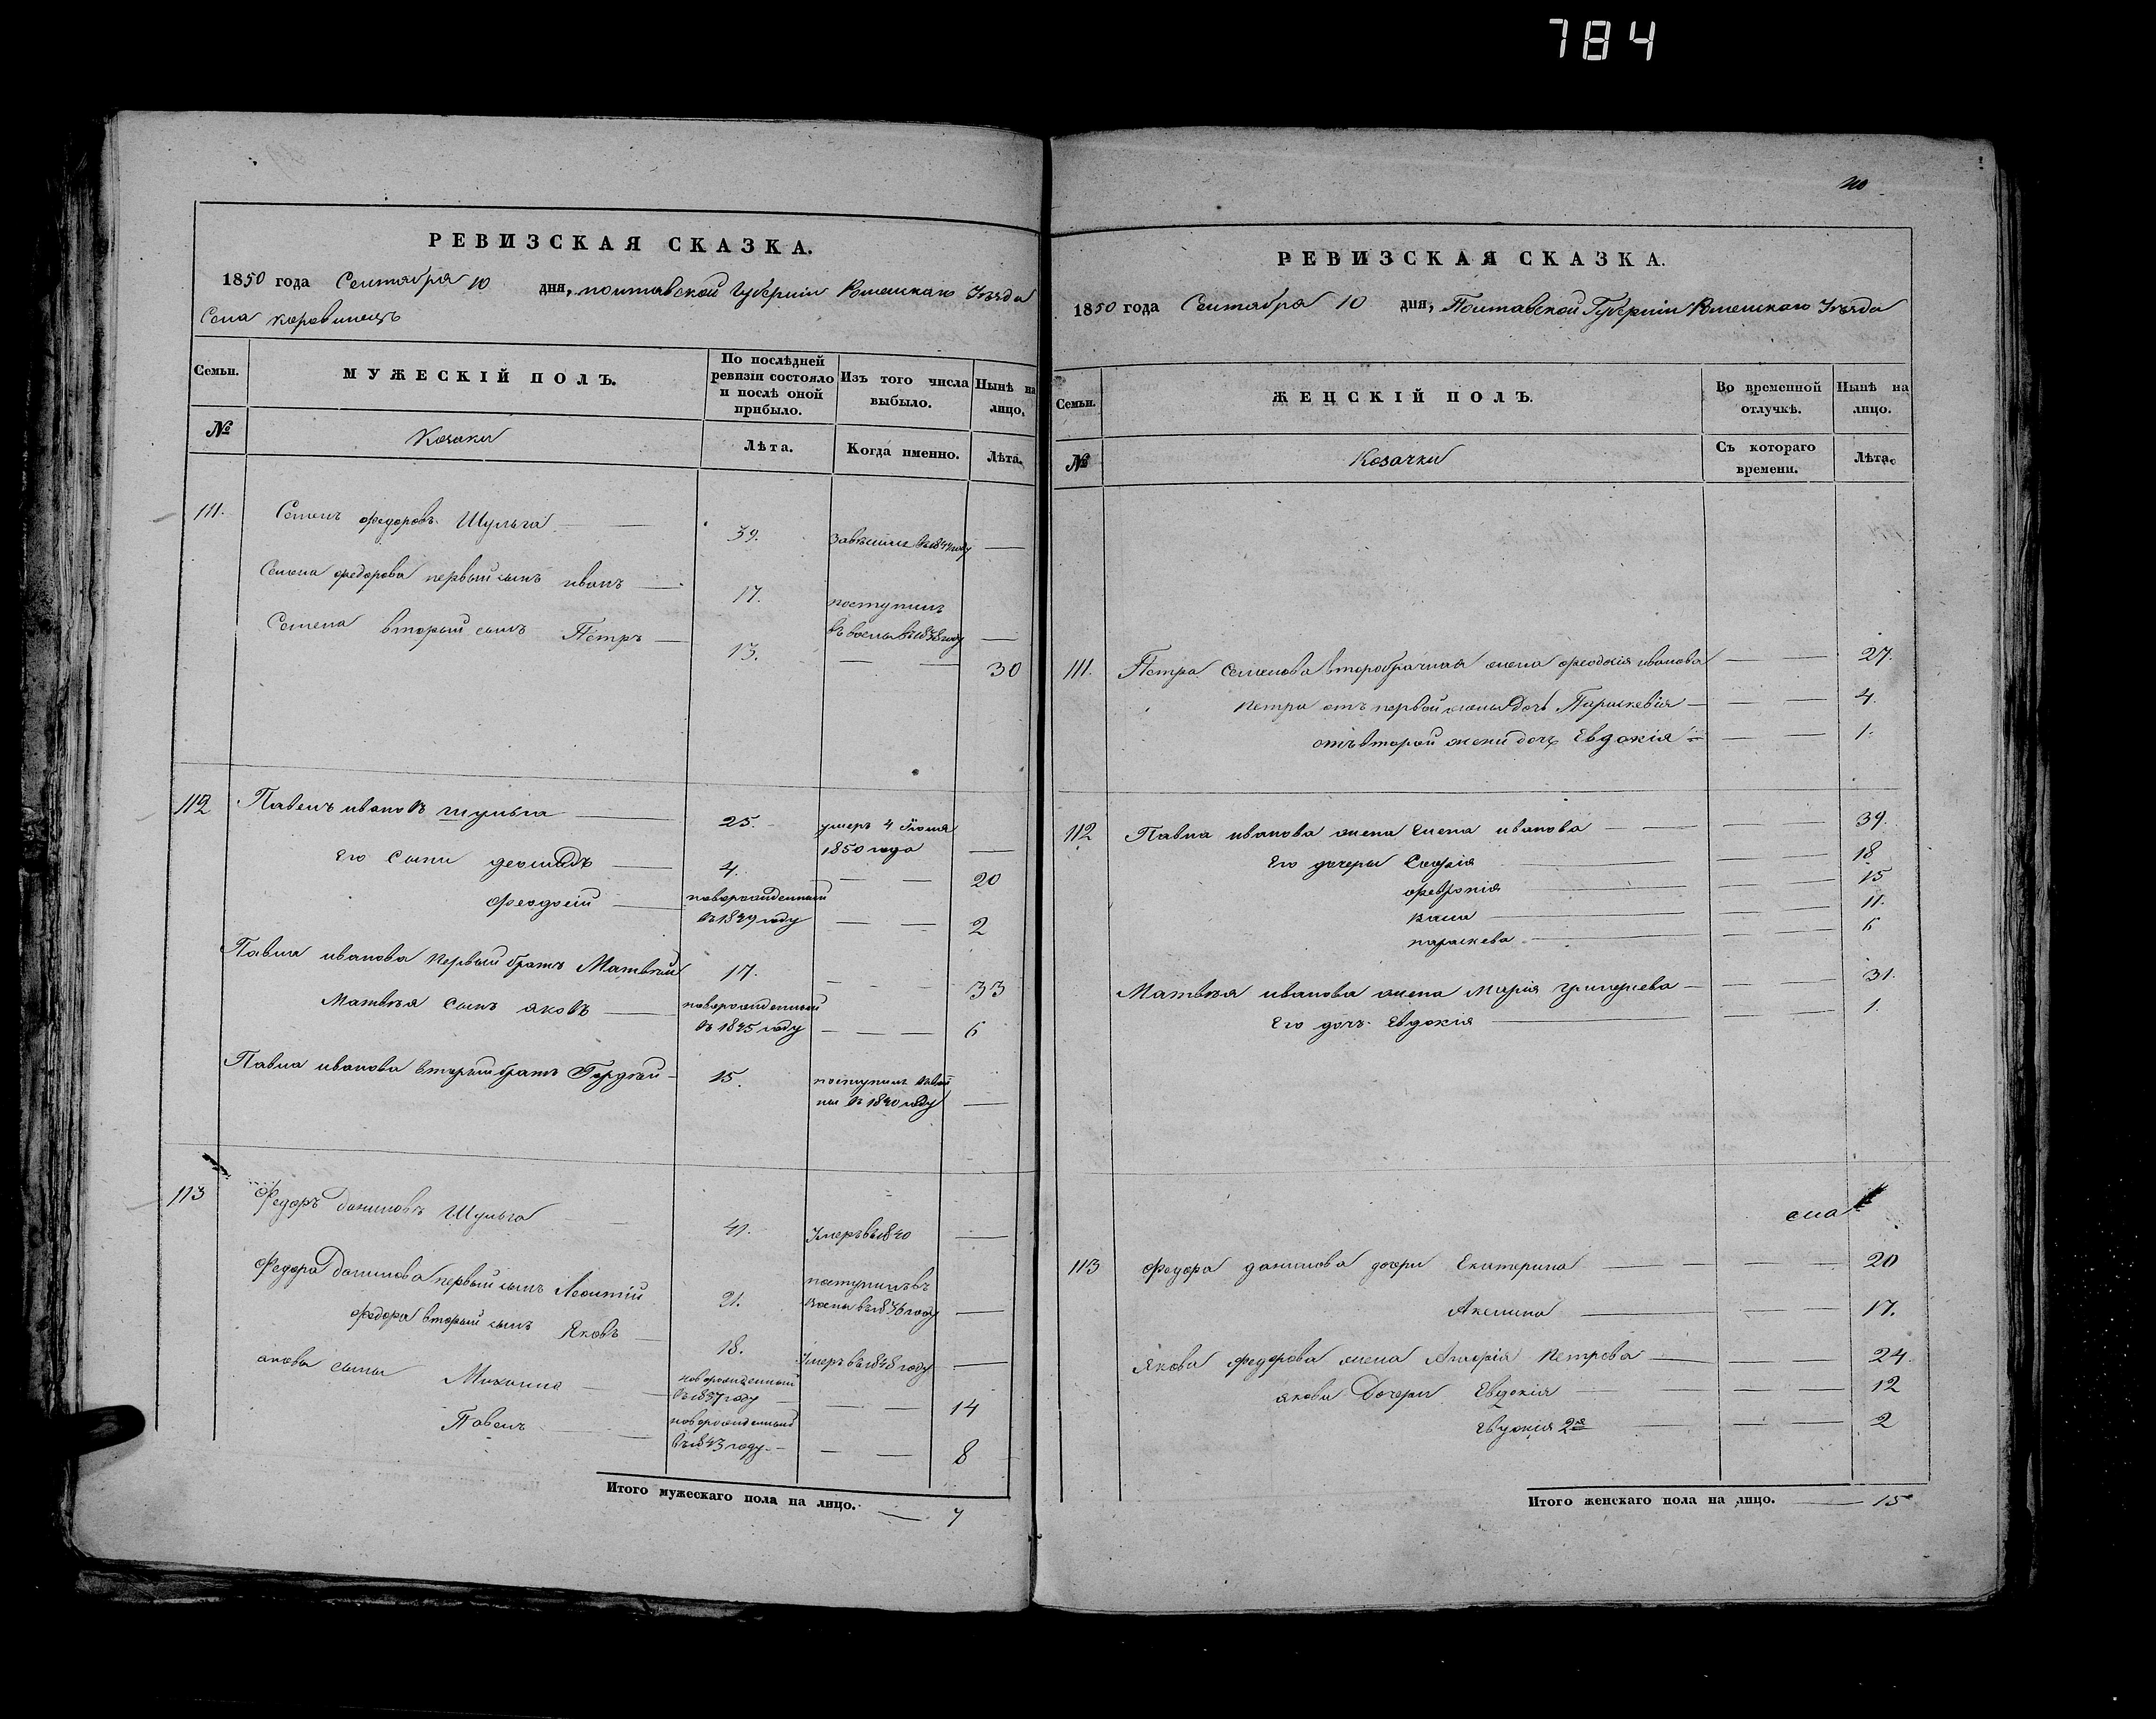 784
РЕВИЗСКАЯ СКАЗКА.
1850 года Сентября 10 дня, полтавской Губерніи Роменскаго Уѣзда
Села коровинецъ
Семьи.
МУЖЕСКІЙ ПОЛЪ.
По послѣдней ревизіи состояло и послѣ оной прибыло.
Изъ того числа выбыло.
Нынѣ на лицо.
№
Козаки
Лѣта.
Когда именно.
Лѣта.
111. Семенъ федоровъ Шульга 39. въ 184 году
Семена федорова первый сынъ иванъ 17. поступилъ
въ 1838 году
Семена вторый сынъ Петръ 13. 30
112 Павелъ ивановъ шульга 25. умеръ 4 Іюня
1850 года
Его сыни 4. 20
феодосій новорожденный
въ 1849 году 2
Павла иванова первый братъ Матвѣй 17. 33
Матвѣя сынъ яковъ новорожденный
въ 1845 году 6
Павла иванова вторый братъ Гордѣй 15. поступилъ
въ 1840 году
113 Федоръ даниловъ Шульга 41. Умеръ въ 1840
Федора данилова первый сынъ Леонтій 21. поступилъ въ
въ 1836 году
федора вторый сынъ Яковъ 18. Умеръ въ 1848 году
якова сыны Михаила новорожденный
въ 1837 году 14
Павелъ новорожденный
въ 1843 году 8
Итого мужескаго пола на лицо. 7
РЕВИЗСКАЯ СКАЗКА.
1850 года Сентября 10 дня, Полтавской Губерніи Роменскаго Уѣзда
Семьи.
ЖЕНСКІЙ ПОЛЪ.
Во временной отлучкѣ.
Нынѣ на лицо.
№
Козачки
Съ котораго времени.
Лѣта.
111. Петра Семенова второбрачная жена феодосія иванова 27.
Петра отъ первой жены дочь Параскевія 4.
отъ второй жени дочь Евдокія 1.
112 Павла иванова жена Елена иванова 39.
Его дочеры Софія 18
феврония 15
11.
параскева 6
Матвѣя иванова жена Марія григорьева 31.
Его дочь Евдокія 1.
113 федора данилова дочери Екатерина 20
Акелина 17.
Якова федорова жена Петрова 24.
якова Дочери Евдокія 12
Евдокія 2я 2
Итого женскаго пола на лицо. 15